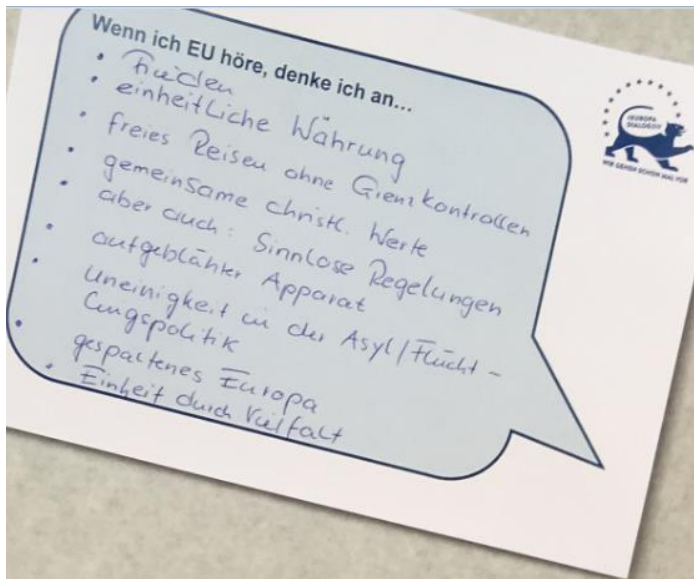 Wenn ich EU höre, denke ich an...
• Frieden
• einheitliche Währung
• freies Reisen ohne Grenzkontrollen
• gemeinsame christl. Werte
• aber auch: Sinnlose Regelungen
• aufgeblähter Apparat
• Uneinigkeit in der Asyl/Flücht-
lingspolitik
• gespaltenes Europa
• Einheit durch Vielfalt
#EUROPA
DIALOG
WIR GEHEN SCHON MAL VOR